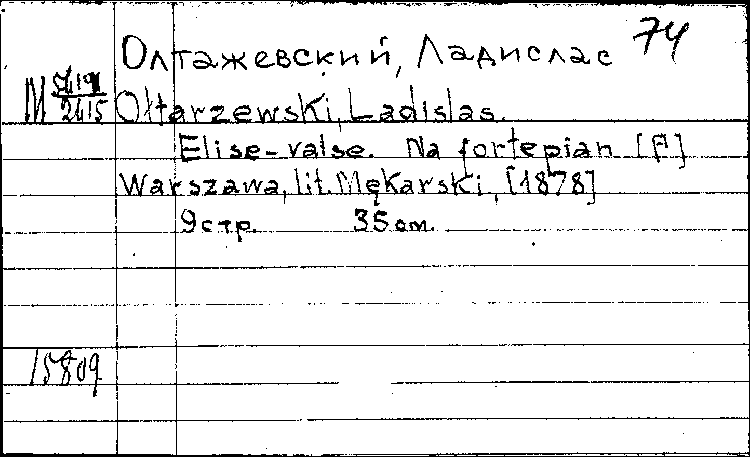 Олтажевский, Ладислас 74
M 2415 Ołtarzewski, Ladislas.
Elise-valse. Na fortepian [F]
Warszawa, lit. Mękarski, [1878]
9 стр. 35 см.
15809